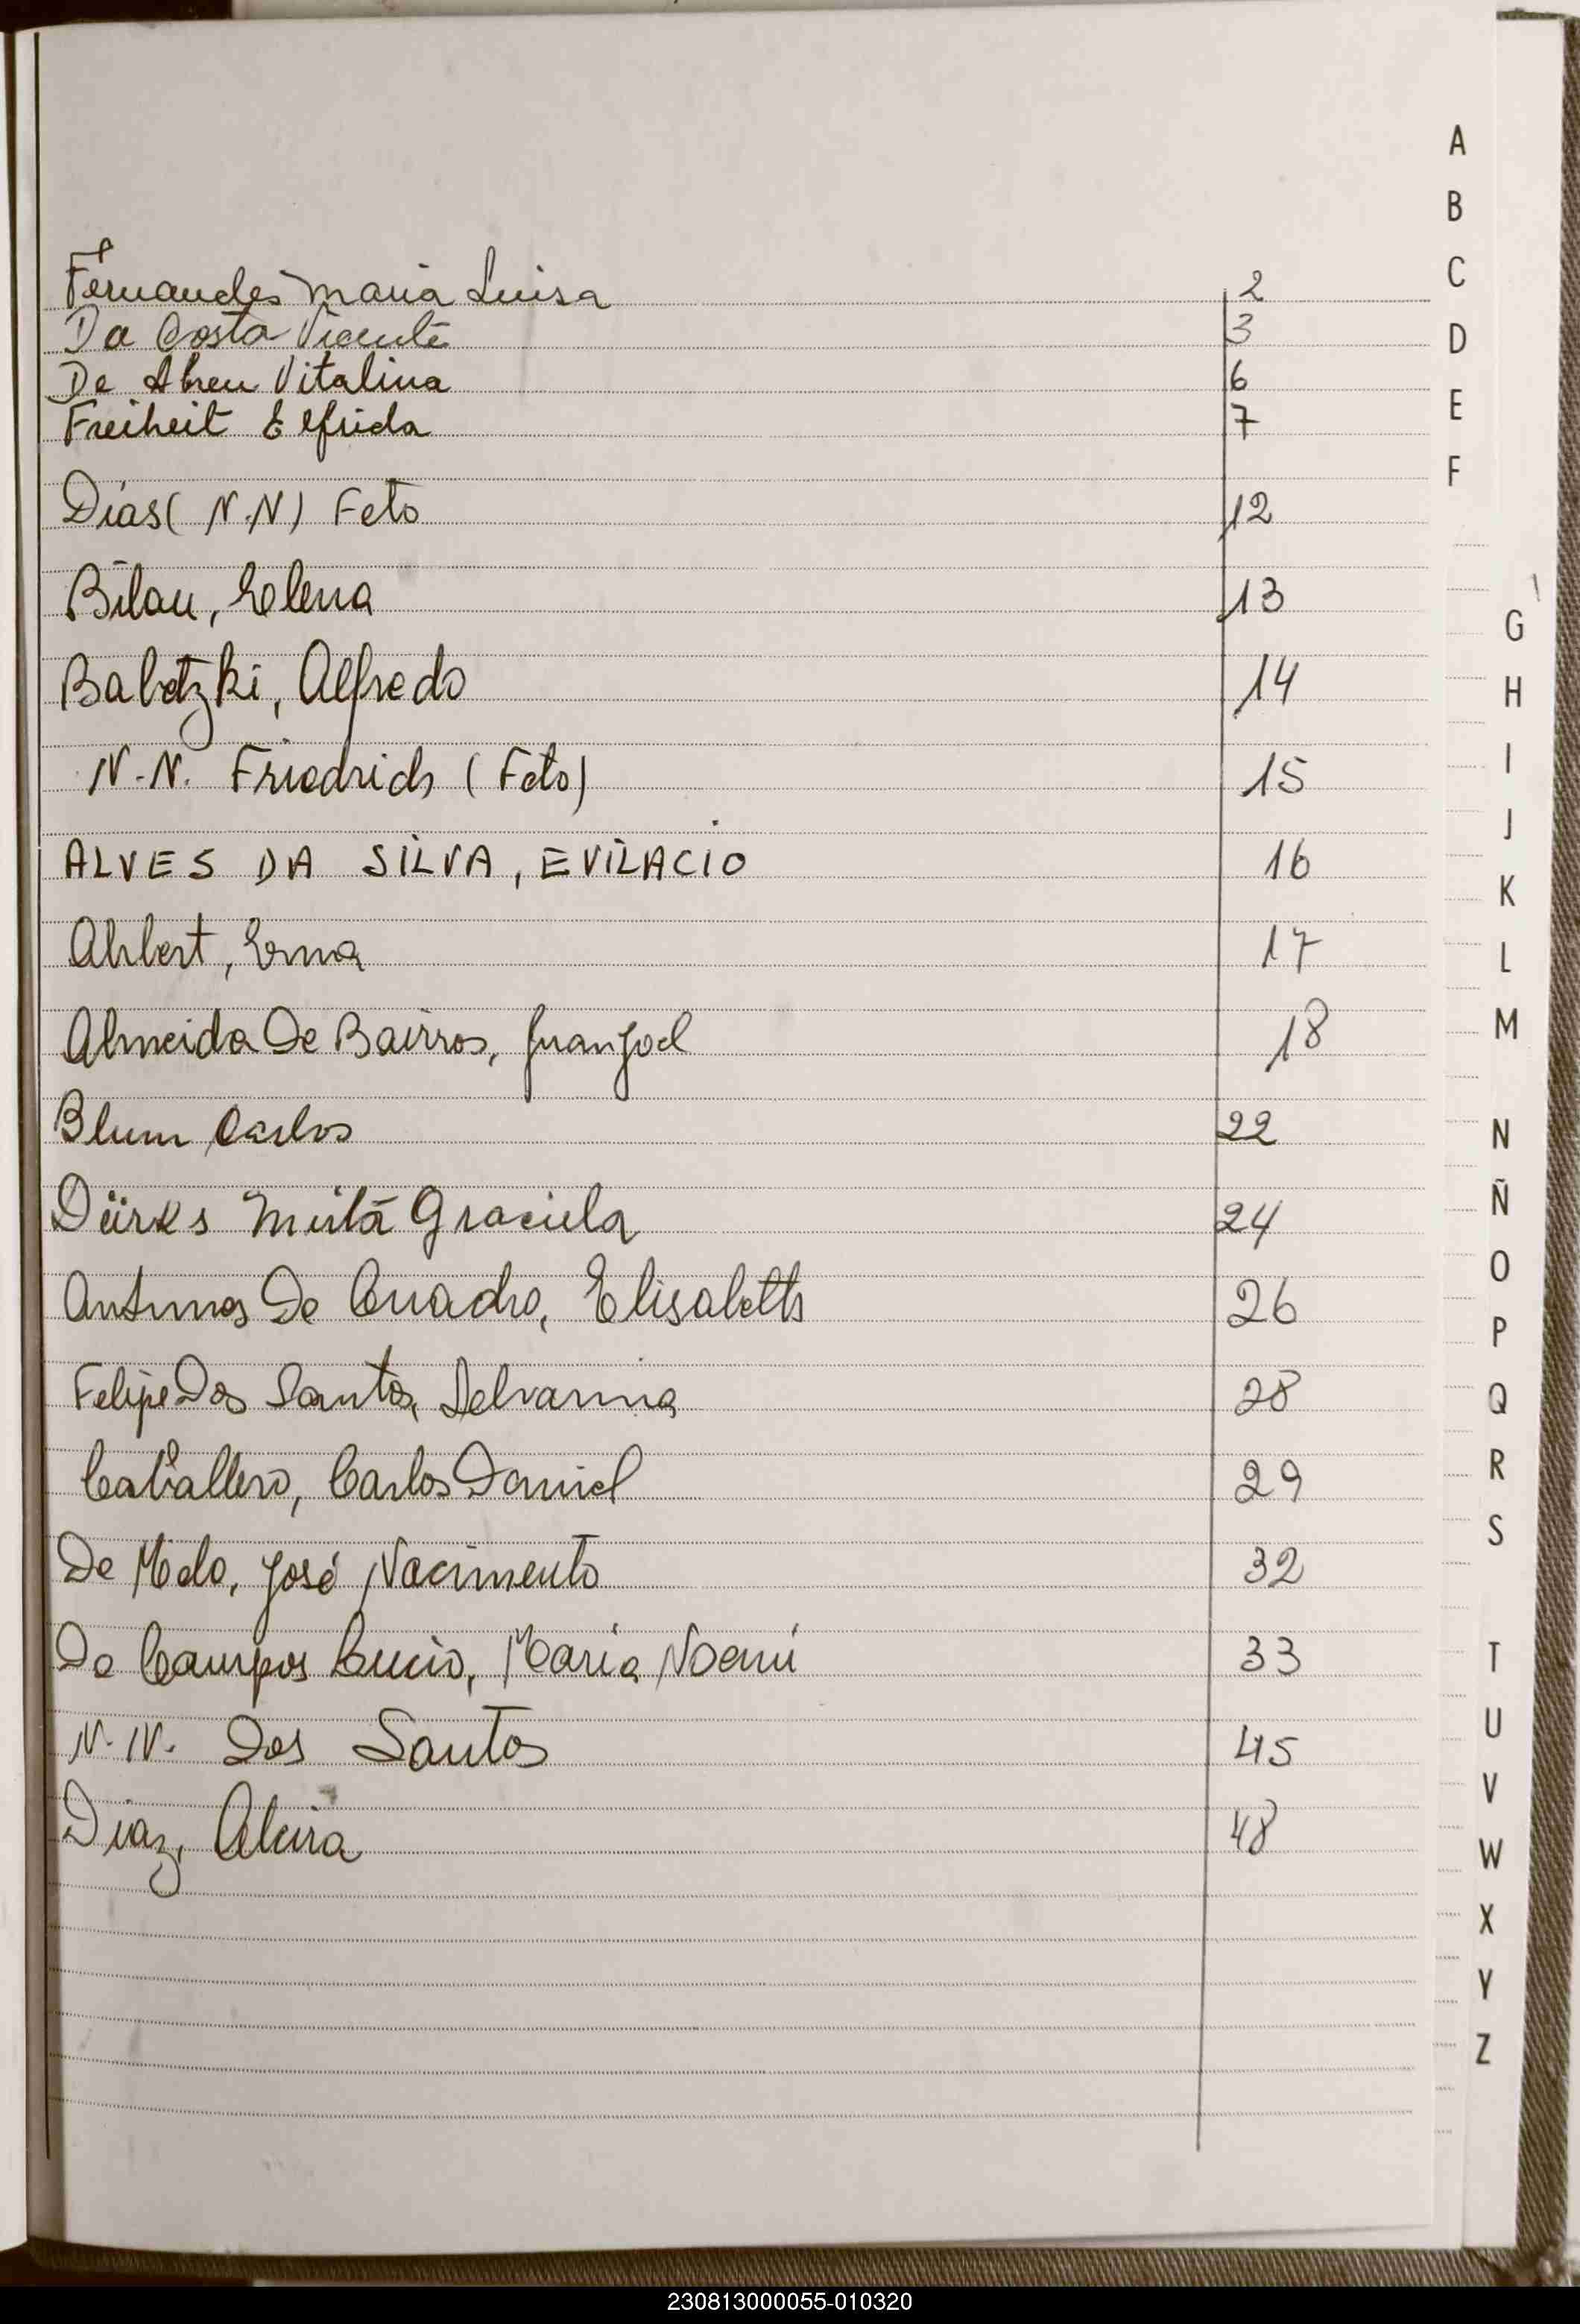 Fernandes Maria Luisa 2
Da Costa Vicente 3
De Abreu Vitalina 6
Freiheit Elfrida 7
Dias (N.N) Feto 12
Bilau, Elena 13
Babetzki, Alfredo 14
N.N. Friedrich (Feto) 15
ALVES DA SILVA, EVILACIO 16
Ahlert, Erna 17
Almeida De Bairros, Juan Joel 18
Blum Carlos 22
Dürks Mirta Graciela 24
Antunes De Cuadro, Elisabeth 26
Felipe Dos Santos, Delvanina 28
Caballero, Carlos Daniel 29
De Melo, José Nacimento 32
De Campos Lucio, Maria Noemi 33
N.N. Dos Santos 45
Diaz, Alcira 48
A
B
C
D
E
F
G
H
I
J
K
L
M
N
Ñ
O
P
Q
R
S
T
U
V
W
X
Y
Z
230813000055-010320